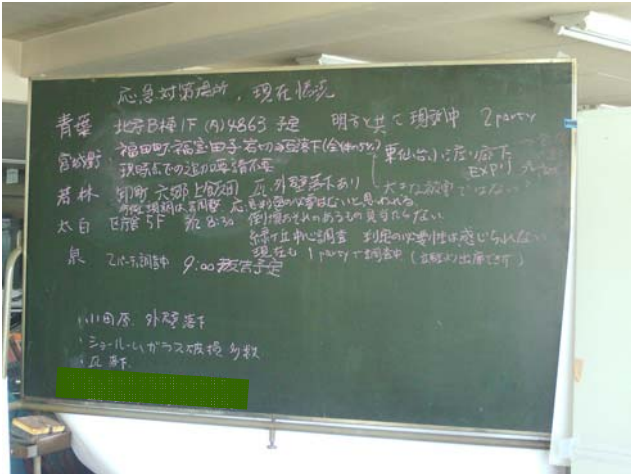 応急対策場所，現在情況
青葉 北庁B棟1F (内)4863 予定 明方と共に現調中 2party
宮城野 福田町、福室田子岩切の外壁落下(全体の5%)
東仙台小に渡り廊下 EXP.J
現時点での追加要請不要
若林 卸町 六郷 上飯田 瓦、外壁落下あり (大きな被害ではない)
応急的の必要はないと思われる。
太白 区庁舎5F 8:30 倒壊おそれのあるもの見当たらない
緑ヶ丘中心調査 判定の必要性は感じられない
現在も 1partyで調査中
泉 2パーティ調査中 9:00報告予定
・小田原. 外壁落下
・ショールームガラス破損多数
・瓦落下